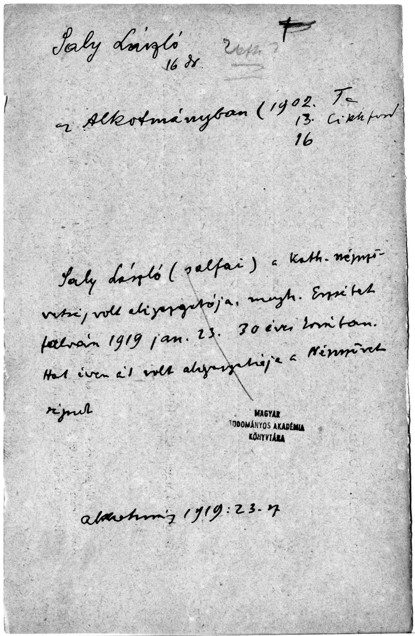 Saly László
16 dr
a Alkotmányban (1902. Ta
13. Cikkford
16
Saly László (salfai) a Kath. Népszö-
vetség volt aligazgatója, megh. Erzsébet
falván 1919 jan. 23. 30 éves korában.
Hat éven át volt aligazgatója a Népszövet
ségnek
MAGYAR
TUDOMÁNYOS AKADÉMIA
KÖNYVTÁRA
Alkotmány 1919:23.